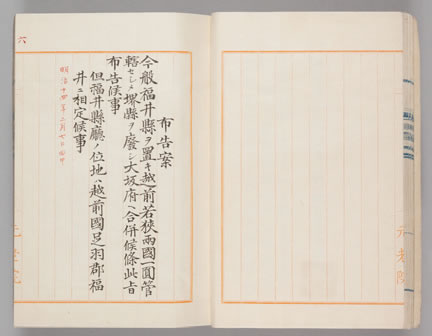 布告案
今般福井縣ヲ置キ越前若狹兩國一圓管
轄セシメ堺縣ヲ廢シ大坂府ヘ合併候條此旨
布告候事
但福井縣廳ノ位地ハ越前國足羽郡福
井ニ相定候事
明治十四年二月七日
六
元老院